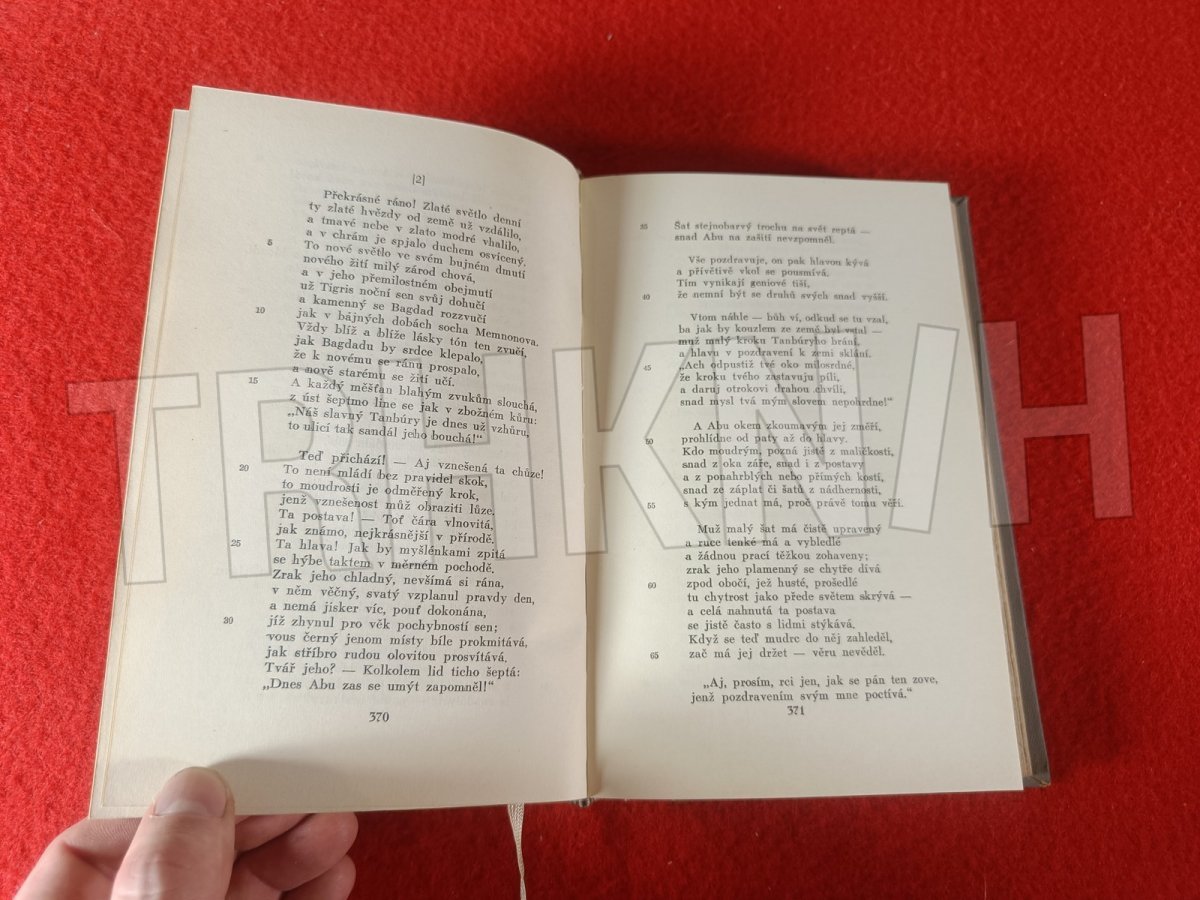 [2]
Překrásné ráno! Zlaté světlo denní
ty zlaté hvězdy od země už vzdálilo,
a tmavé nebe v zlato modré vhalilo,
a v chrám je spjalo duchem osvícený.
5 To nové světlo ve svém bujném dmutí
nového žití milý zárod chová,
a v jeho přemilostném obejmutí
už Tigris noční sen svůj dohučí
a kamenný se Bagdad rozzvučí
10 jak v bájných dobách socha Memnonova.
Vždy blíž a blíže lásky tón ten zvučí,
jak Bagdadu by srdce klepalo,
že k novému se ránu prospalo,
a nově starému se žití učí.
15 A každý měšťan blahým zvukům slouchá,
z úst šeptmo line se jak v zbožném kůru:
„Náš slavný Tanbúry je dnes už vzhůru,
to ulicí tak sandál jeho bouchá!“
Teď přichází! — Aj vznešená ta chůze!
20 To není mládí bez pravidel skok,
to moudrosti je odměřený krok,
jenž vznešenost můž obraziti lůze.
Ta postava! — Toť čára vlnovitá,
jak známo, nejkrásnější v přírodě.
25 Ta hlava! Jak by myšlénkami zpitá
se hýbe taktem v měrném pochodě.
Zrak jeho chladný, nevšímá si rána,
v něm věčný, svatý vzplanul pravdy den,
a nemá jisker víc, pouť dokonána,
30 jíž zhynul pro věk pochybností sen;
vous černý jenom místy bíle prokmitává,
jak stříbro rudou olovitou prosvítává.
Tvář jeho? — Kolkolem lid ticho šeptá:
„Dnes Abu zas se umýt zapomněl!“
370
35 Šat stejnobarvý trochu na svět zeptá —
snad Abu na zašití nevzpomněl.
Vše pozdravuje, on pak hlavou kývá
a přívětivě vkol se pousmívá.
Tím vynikají geniové tiší,
40 že nemní být se druhů svých snad vyšší.
Vtom náhle — bůh ví, odkud se tu vzal,
ba jak by kouzlem ze země byl vstal —
muž malý kroku Tanbúryho brání,
a hlavu v pozdravení k zemi sklání.
45 „Ach odpustiž tvé oko milosrdné,
že kroku tvého zastavuju píli,
a daruj otrokovi drahou chvíli,
snad mysl tvá mým slovem nepohrdne!“
A Abu okem zkoumavým jej změří,
50 prohlídne od paty až do hlavy.
Kdo moudrým, pozná jistě z maličkostí,
snad z oka záře, snad i z postavy
a z ponahrblých nebo přímých kostí,
snad ze záplat či šatů z nádhernosti,
55 s kým jednat má, proč právě tomu věří.
Muž malý šat má čistě upravený
a ruce tenké má a vybledlé
a žádnou prací těžkou zohaveny;
zrak jeho plamenný se chytře dívá
60 zpod obočí, jež husté, prošedlé
tu chytrost jako přede světem skrývá —
a celá nahnutá ta postava
se jistě často s lidmi stýkává.
Když se teď mudrc do něj zahleděl,
65 zač má jej držet — věru nevěděl.
„Aj, prosím, rci jen, jak se pán ten zove,
jenž pozdravením svým mne poctívá.“
371
TRHKNIH